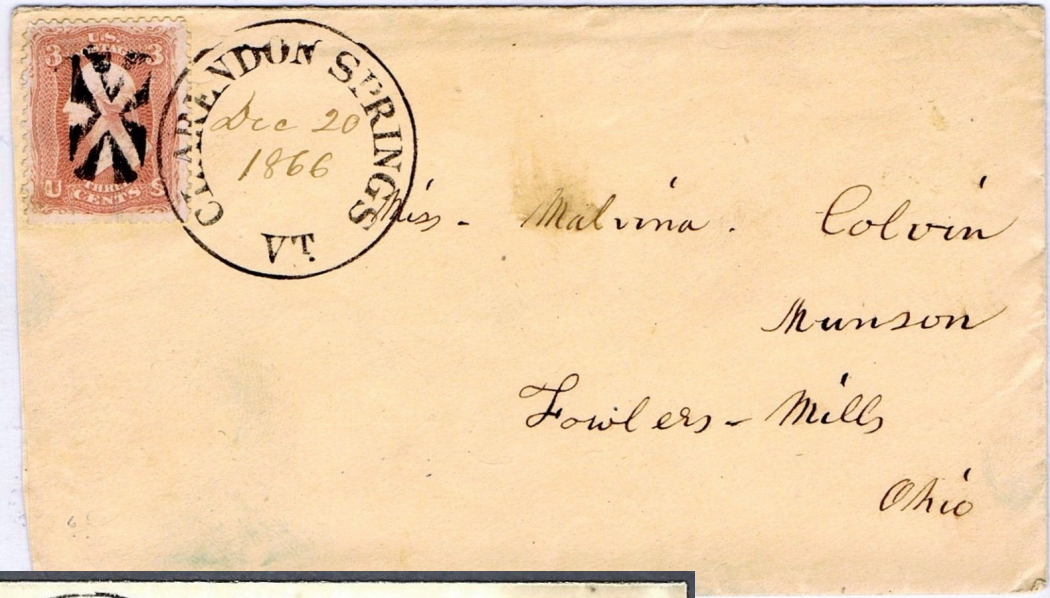 U.S.
POSTAGE
3 3
THREE
U S
CENTS
CLARENDON SPRINGS
Dec 20
1866
VT.
Miss - Malvina . Colvin
Munson
Fowlers - Mills
Ohio